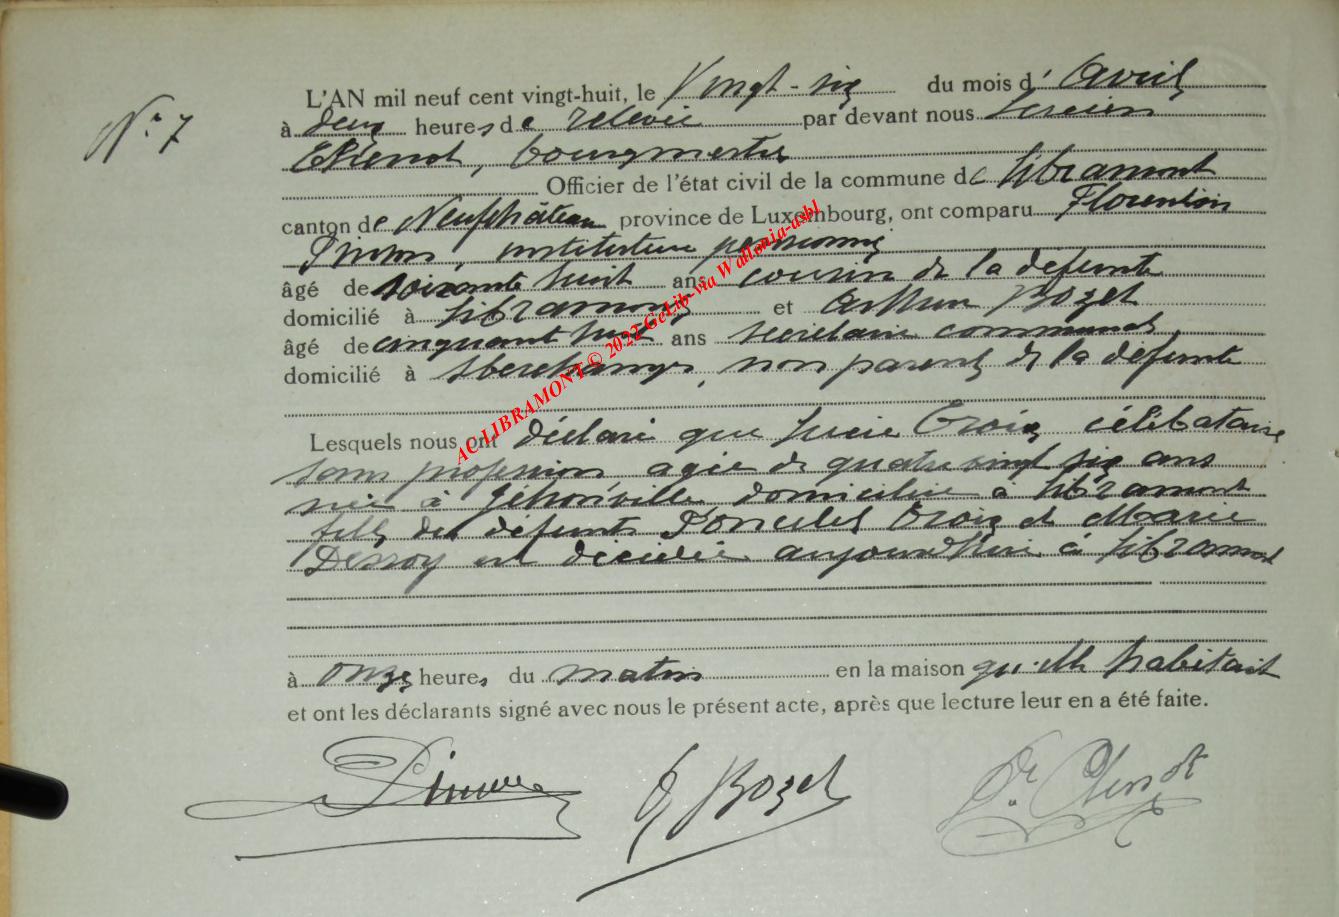 N° 7
L'AN mil neuf cent vingt-huit, le Vingt-six du mois d' Avril
à deux heures de relevée par devant nous Lucien
bourgmestre
Officier de l'état civil de la commune de Libramont
canton de Neufchâteau province de Luxembourg, ont comparu Florentin
Simon, instituteur pensionné
âgé de soixante huit ans cousin de la défunte
domicilié à Libramont et Arthur Bozet
âgé de cinquante huit ans secrétaire communal,
domicilié à non parent de la défunte
Lesquels nous ont déclaré que Lucie Croix célibataire
sans profession agée de quatre vingt six ans
née à Jehonville domiciliée à Libramont
fille des défunts Poncelet Croix et Marie
Dessoy est décédée aujourd'hui à Libramont
à onze heures du matin en la maison qu'elle habitait
et ont les déclarants signé avec nous le présent acte, après que lecture leur en a été faite.
Simon A Bozet Dr
AC LIBRAMONT © 2022 GeLib-via Wallonia-asbl